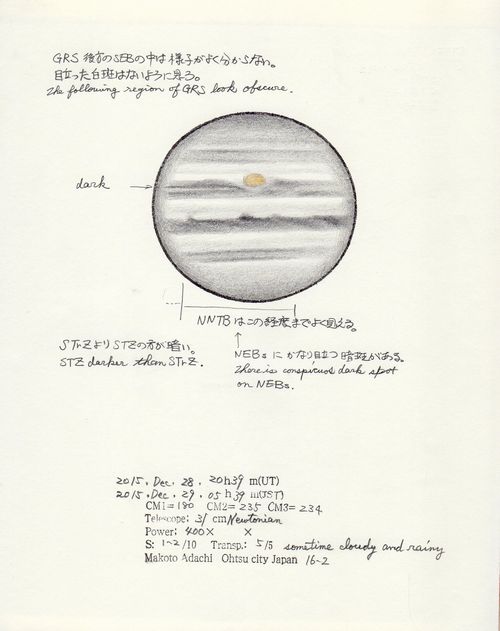 GRS 後方のSEBの中は様子がよく分からない。
目立った白斑はないように思う。
The following region of GRS look obscure.
dark
NNTBはこの経度までよく見える。
STrZよりSTZの方が暗い。
STZ darker than STrZ.
NEBsにかなり目立つ暗斑がある。
There is conspicuos dark spot
on NEBs.
2015. Dec. 28. 20h39 m(UT)
2015. Dec. 29. 05h39 m(JST)
CM1=180 CM2=235 CM3=234
Telescope: 31 cm Newtonian
Power: 400× ×
S: 1~2/10 Transp.: 5/5 sometime cloudy and rainy
Makoto Adachi Ohtsu city Japan 16-2